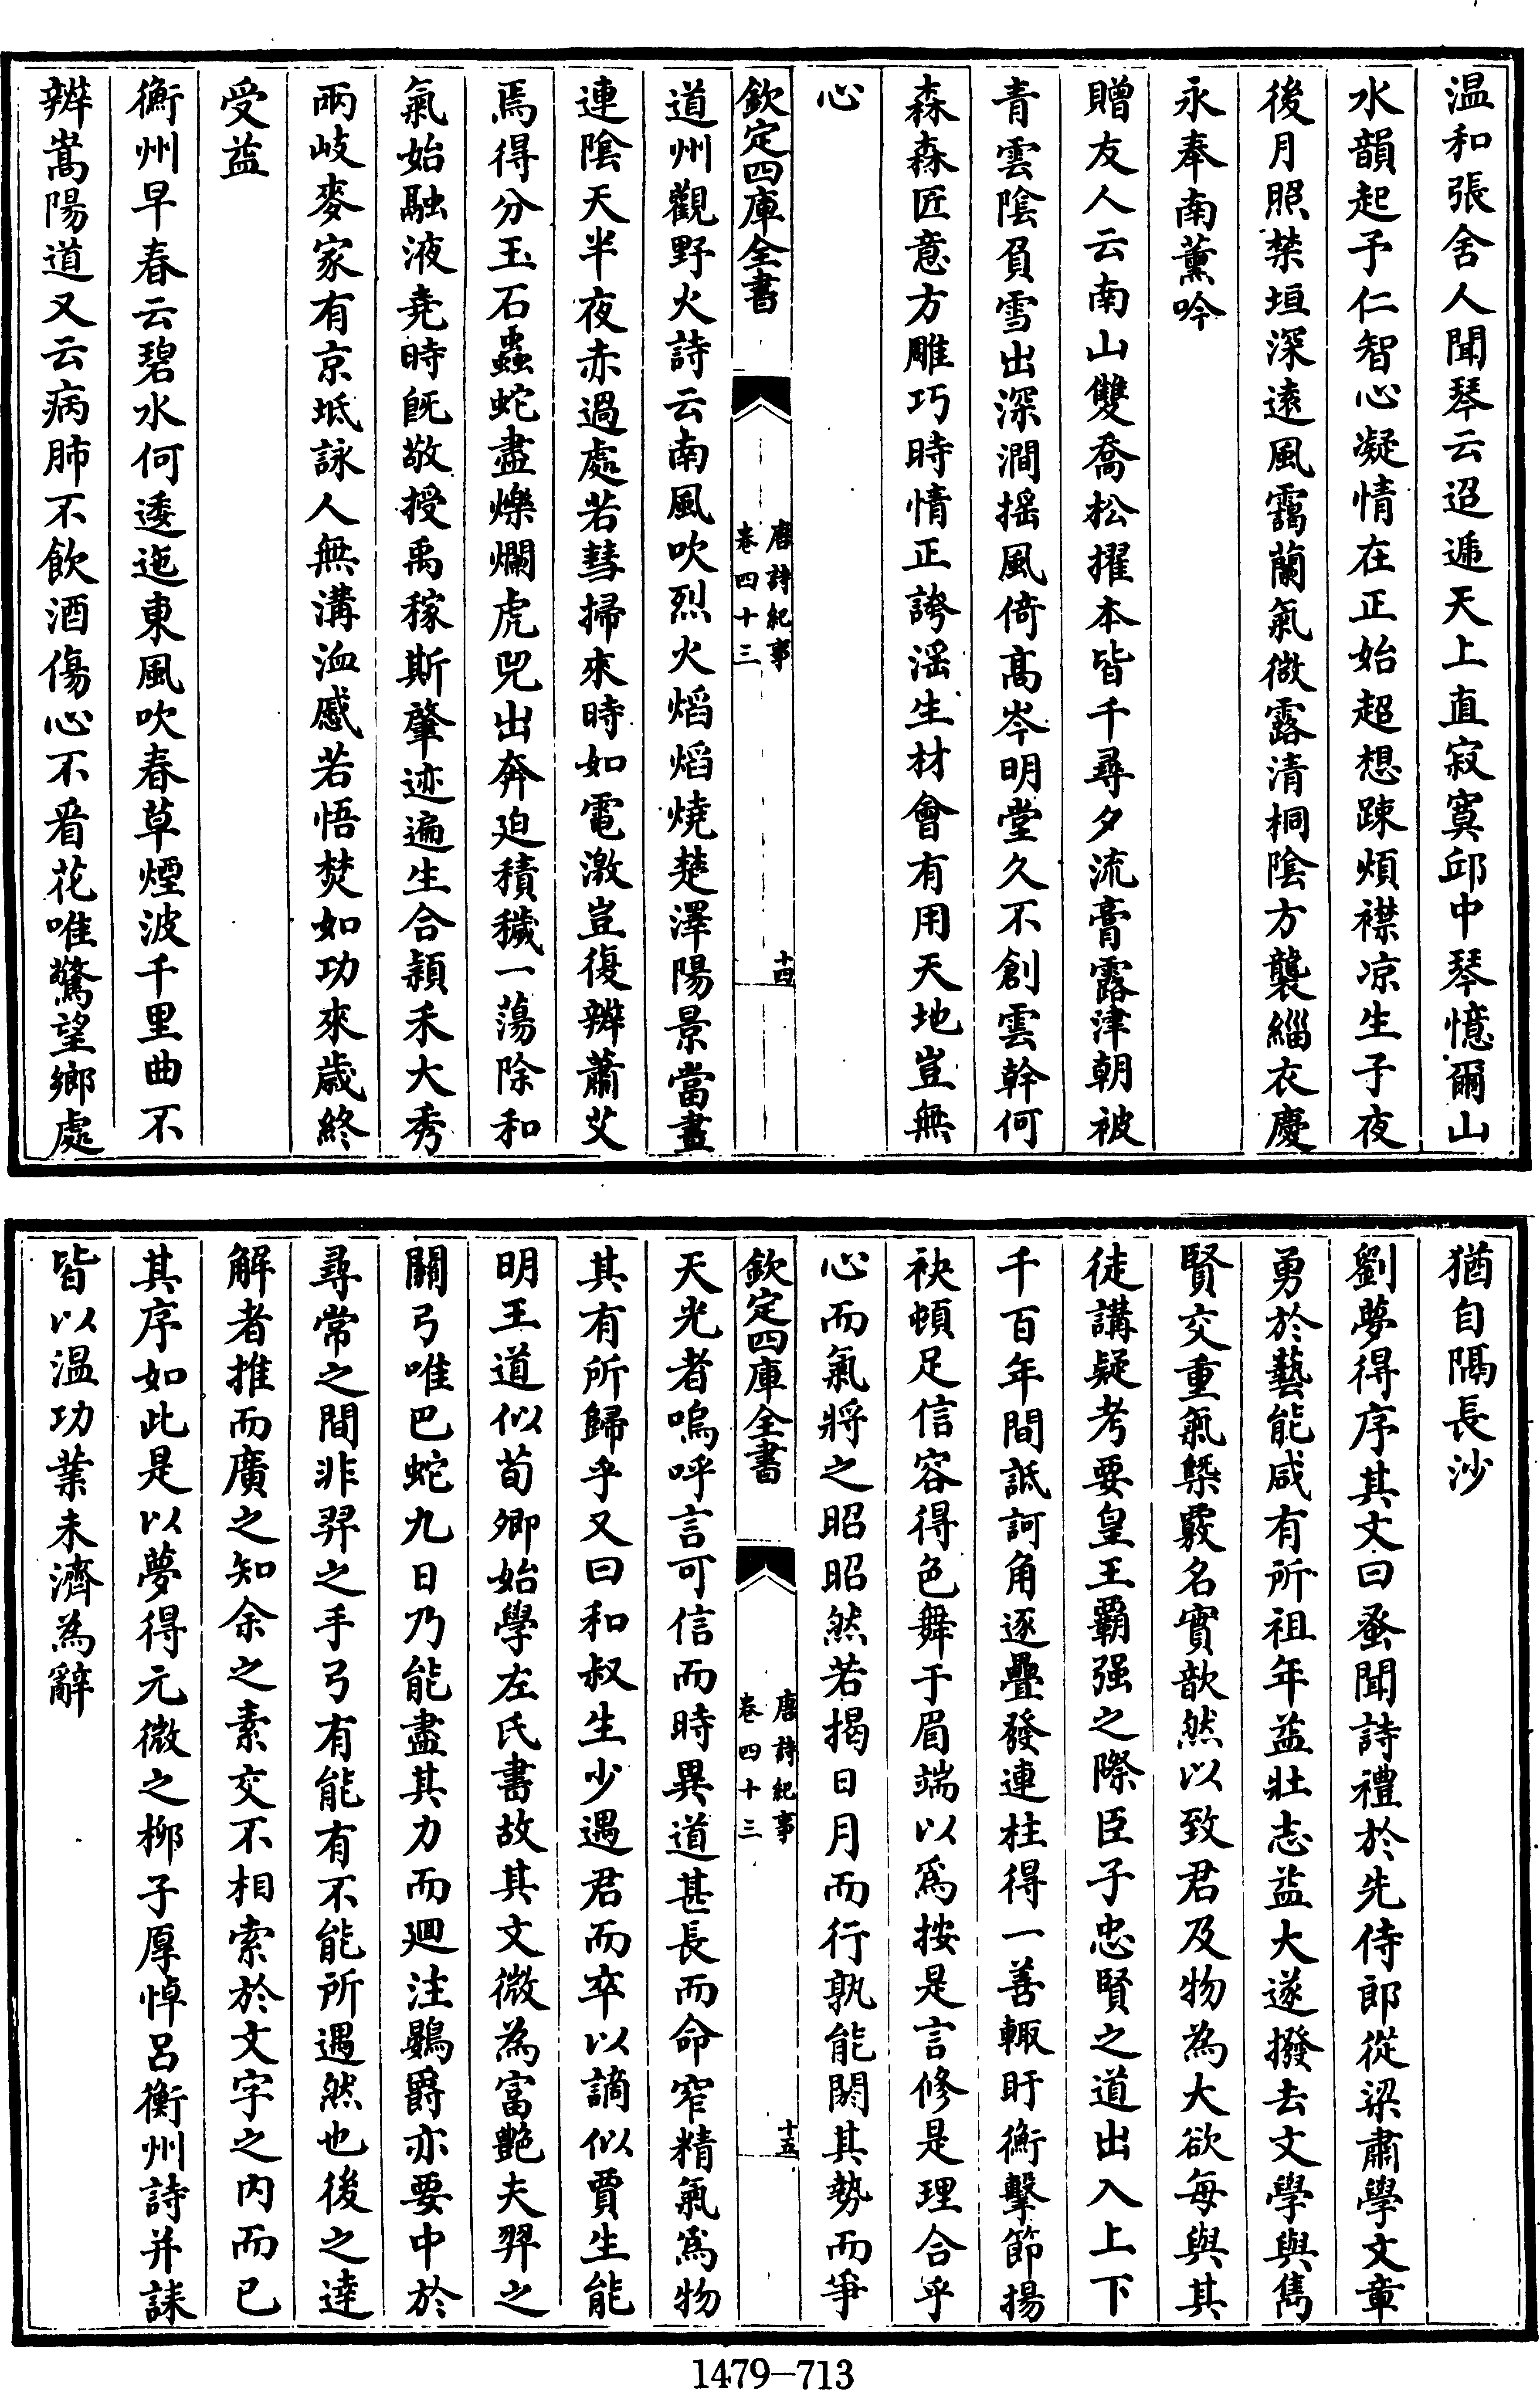 温和張舍人聞琴云迢遞天上直寂寞邱中琴憶爾山
水韻起予仁智心凝情在正始超想踈煩襟凉生子夜
後月照禁垣深遠風靄蘭氣微露清桐隂方襲緇衣慶
永奉南薫吟
贈友人云南山雙喬松擢本皆千尋夕流膏露津朝被
青雲隂負雪出深澗揺風倚髙岑明堂久不創雲幹何
森森匠意方雕巧時情正誇淫生材㑹有用天地豈無
心
欽定四庫全書
唐詩紀事
卷四十三
十四
道州觀野火詩云南風吹烈火熖熖燒楚澤陽景當晝
連隂天半夜赤過處若彗掃來時如電激豈復辨蕭艾
焉得分玉石蟲蛇盡爍爛虎兕出奔迫積穢一蕩除和
氣始融液堯時旣敬授禹稼斯肇迹遍生合頴禾大秀
兩岐麥家有京坻詠人無溝洫慼若悟焚如功來歲終
受益
衡州早春云碧水何逶迤東風吹春草煙波千里曲不
辨嵩陽道又云病肺不飲酒傷心不看花唯驚望鄉處
猶自隔長沙
劉夢得序其文曰蚤聞詩禮於先侍郎從梁肅學文章
勇於藝能咸有所祖年益壯志益大遂撥去文學與雋
賢交重氣槩覈名實歆然以致君及物為大欲每與其
徒講疑考要皇王覇强之際臣子忠賢之道出入上下
千百年間詆訶角逐疊發連柱得一善輒盱衡擊節揚
袂頓足信容得色舞于眉端以爲按是言修是理合乎
心而氣將之昭昭然若揭日月而行孰能閼其勢而爭
欽定四庫全書
唐詩紀事
卷四十三
十五
天光者嗚呼言可信而時異道甚長而命窄精氣爲物
其有所歸乎又曰和叔生少遇君而卒以謫似賈生能
明王道似荀卿始學左氏書故其文微為富艶夫羿之
關弓唯巴蛇九日乃能盡其力而廻注鷃爵亦要中於
尋常之間非羿之手弓有能有不能所遇然也後之達
解者推而廣之知余之素交不相索於文字之内而已
其序如此是以夢得元微之柳子厚悼呂衡州詩并誄
皆以温功業未濟為辭
1479—713